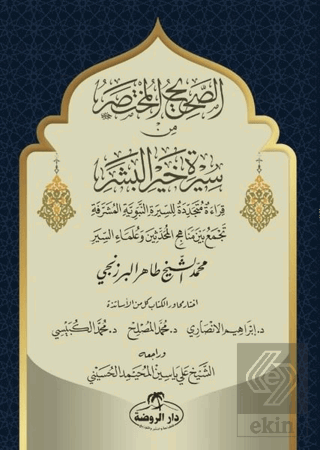 الصحيح المختصر
من
سيرة خير البشر ﷺ
قراءة متجددة للسيرة النبوية المشرفة
تجمع بين مناهج المحدثين وعلماء السير
محمد الشيخ طاهر البرزنجي
اختار محاور الكتاب كل من الأساتذة
د. إبراهيم الأنصاري د. محمد المصلح د. محمد الكبيسي
وراجعه
الشيخ علي ياسين المحيمد الحسيني
دار الروضة
ekin